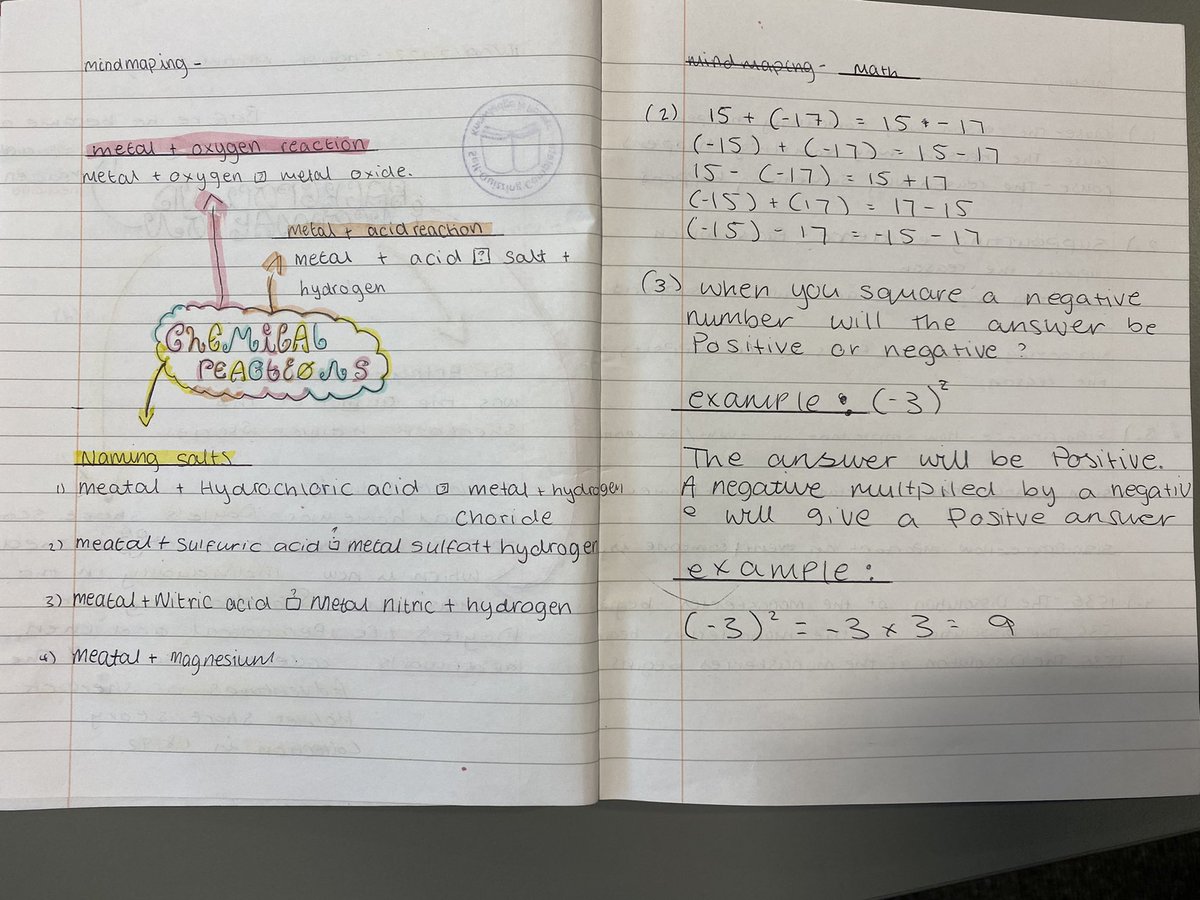 mindmaping -
metal + oxygen reaction
metal + oxygen ⍰ metal oxide.
metal + acid reaction
metal + acid ⍰ salt +
hydrogen
CHEMICAL
REACTIONS
Naming salts
1) meatal + Hydrochloric acid ⍰ metal + hydrogen
choride
2) meatal + Sulfuric acid ⍰ metal sulfatt hydrogen
3) meatal + Nitric acid ⍰ Metal nitric + hydrogen
4) meatal + Magnesium.
mind maping - math
(2) 15 + (-17) = 15 + -17
(-15) + (-17) = 15 - 17
15 - (-17) = 15 + 17
(-15) + (17) = 17 - 15
(-15) - 17 = -15 - 17
(3) when you square a negative
number will the answer be
Positive or negative ?
example : (-3)²
The answer will be Positive.
A negative multpiled by a negativ
e will give a Positve answer
example :
(-3)² = -3 x 3 = 9